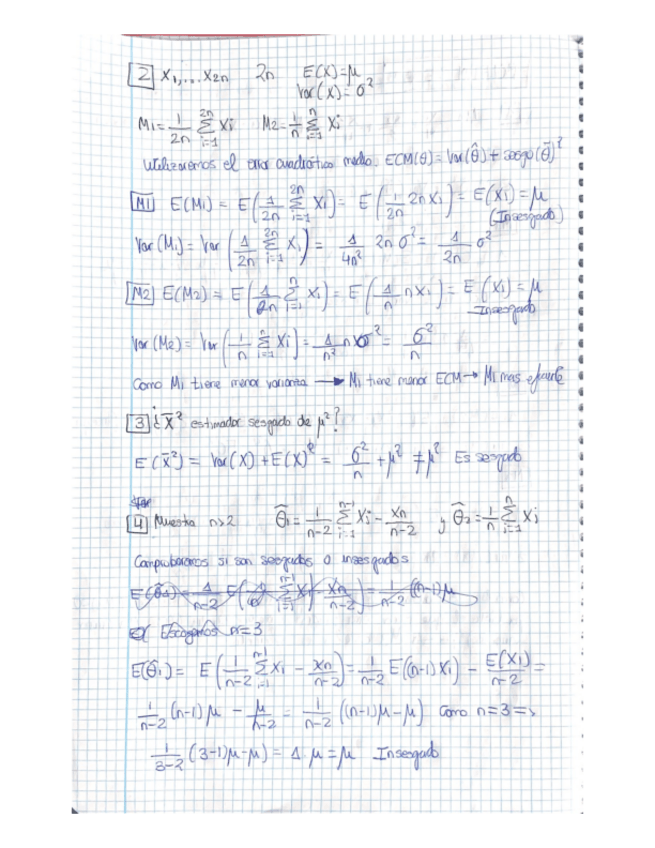 2 X1,... X2n 2n E(X)=μ
Var(X)=σ²
M1=1/2n Σ_{i=1}^{2n} Xi M2=1/n Σ_{i=1}^{n} Xi
Utilizaremos el error cuadrático medio. ECM(θ)= Var(θ̂)+ sesgo(θ̂)²
M1 E(M1) = E(1/2n Σ_{i=1}^{2n} Xi) = E(1/2n 2n X1) = E(X1) = μ
(Insesgado)
Var(M1) = Var(1/2n Σ_{i=1}^{2n} Xi) = 1/4n² 2n σ² = 1/2n σ²
M2 E(M2) = E(1/n Σ_{i=1}^{n} Xi) = E(1/n n X1) = E(X1) = μ
Insesgado
Var(M2) = Var(1/n Σ_{i=1}^{n} Xi) = 1/n² n σ² = σ²/n
Como M1 tiene menor varianza → M1 tiene menor ECM → M1 mas eficiente
3 ¿X̄² estimador sesgado de μ²?
E(X̄²) = Var(X) + E(X)² = σ²/n + μ² ≠ μ² Es sesgado
4 Muestra n>2 θ̂1 = 1/n-2 Σ_{i=1}^{n-1} Xi - Xn/n-2 y θ̂2 = 1/n Σ_{i=1}^{n} Xi
Comprobaremos si son sesgados o insesgados
Escogemos n=3
E(θ̂1) = E(1/n-2 Σ_{i=1}^{n-1} Xi - Xn/n-2) = 1/n-2 E((n-1)X1) - E(X1)/n-2 =
1/n-2 (n-1)μ - μ/n-2 = 1/n-2 ((n-1)μ-μ) Como n=3 =>
1/3-2 (3-1)μ-μ) = 1·μ = μ Insesgado